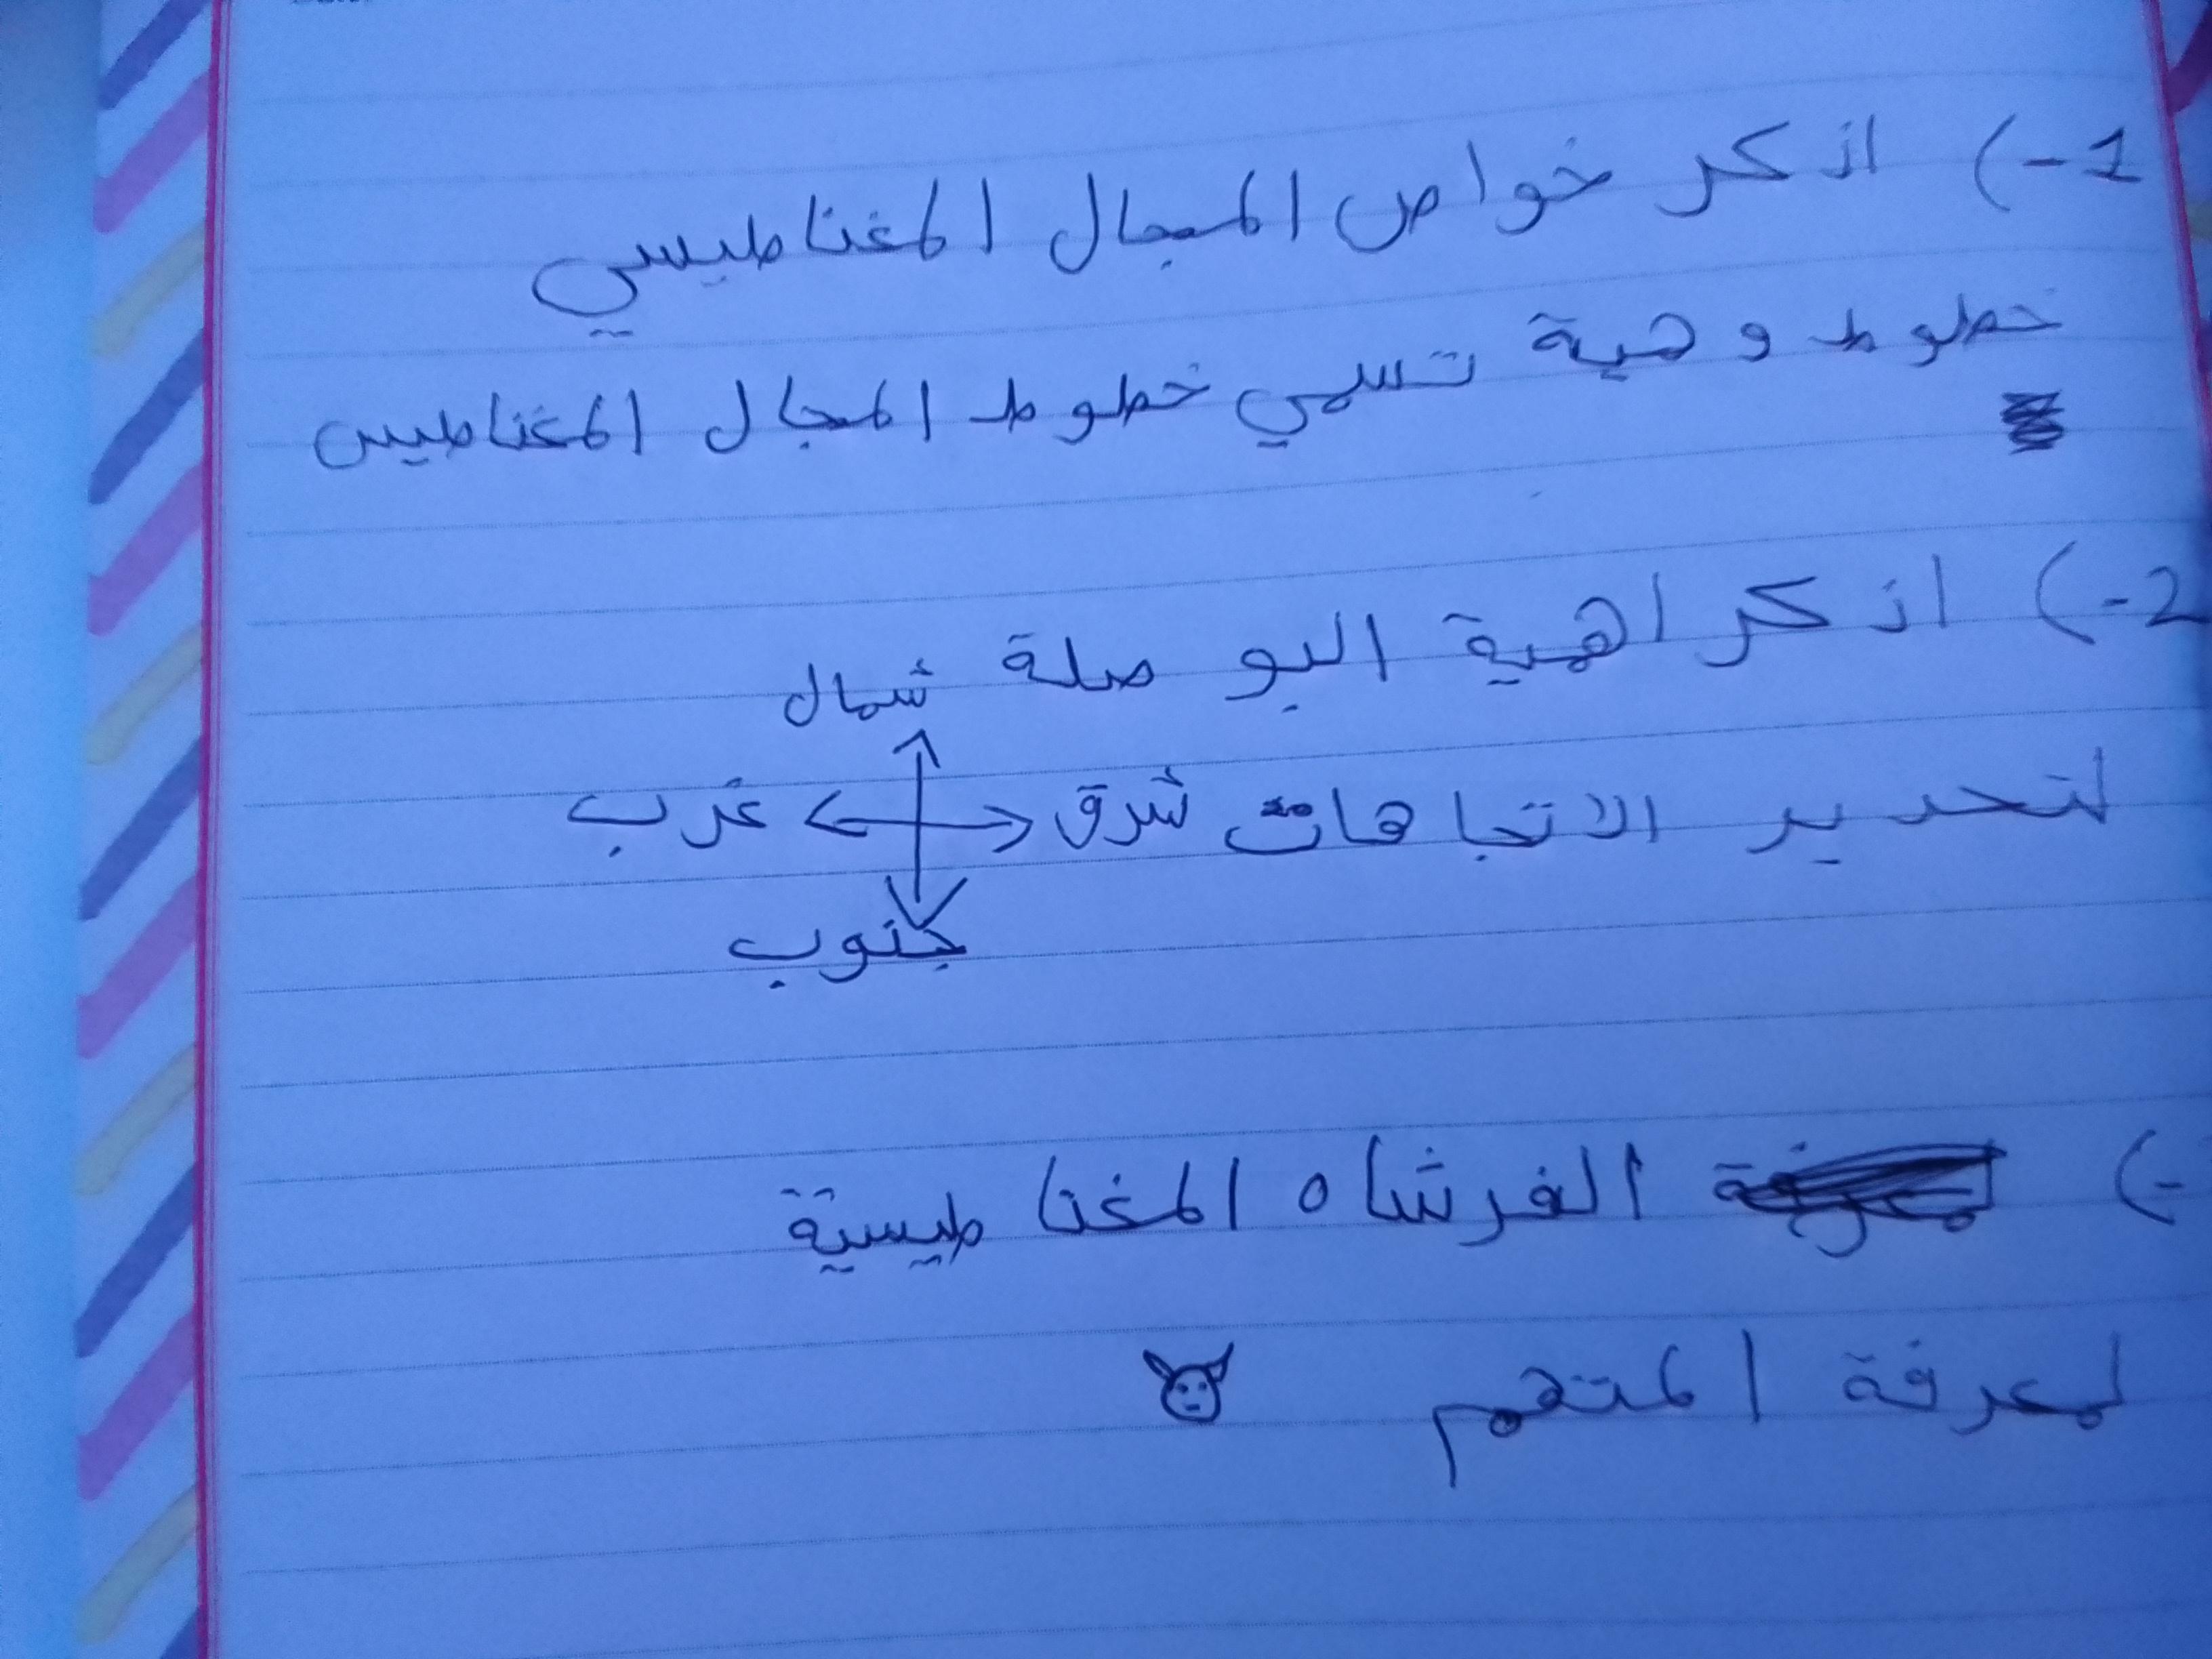 1-) اذكر خواص المجال المغناطيسي
خطوط وهمية تسمي خطوط المجال المغناطيس
2-) اذكر اهمية البوصلة
شمال
لتحديد الاتجاهات شرق غرب
جنوب
-) الفرشاه المغناطيسية
لمعرفة المتهم